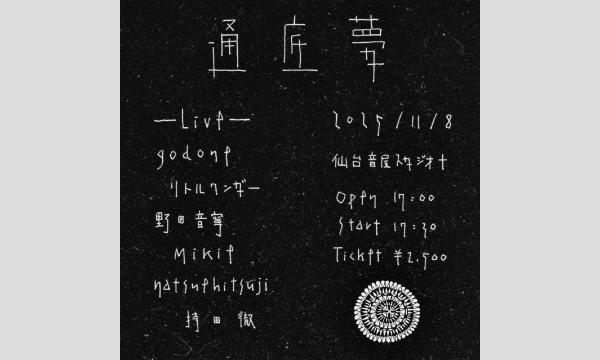 通底夢
—Live—
godone
リトルワンダー
野田音寧
Mikie
natsuehitsuji
持田徹
2025/11/8
仙台音屋スタジオ+
Open 17:00
Start 17:30
Ticket ¥2.500